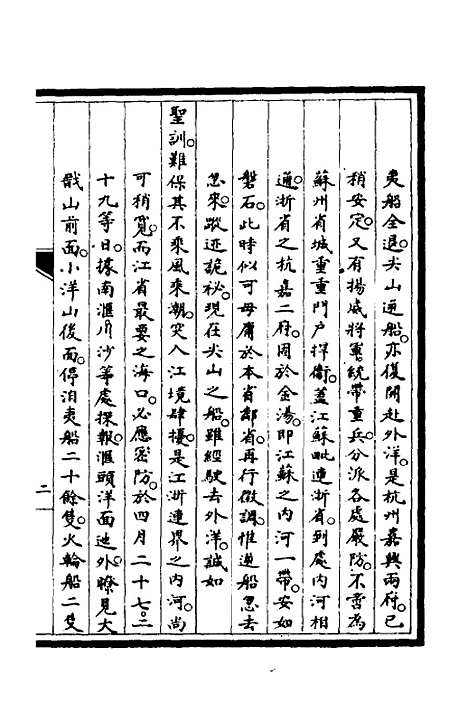 夷船全退。尖山逆船。亦復開赴外洋。是杭州嘉興兩府。已
稍安定。又有揚威將軍。統帶重兵。分派各處嚴防。不啻為
蘇州省城重重門戶捍衛。蓋江蘇毗連浙省。到處內河相
通。浙省之杭嘉二府。固於金湯。即江蘇之內河一帶。安如
磐石。此時似可毋庸於本省鄰省。再行徵調。惟逆船忽去
忽來。蹤跡詭祕。現在尖山之船。雖經駛去外洋。誠如
聖訓。難保其不乘風乘潮。突入江境肆擾。是江浙連界之內河。尚
可稍寬。而江省最要之海口。必應密防。於四月二十七。二
十九等日。據南滙川沙等處探報。滙頭洋面迤外。瞭見大
戢山前面。小洋山後面。停泊夷船二十餘隻。火輪船二隻
二